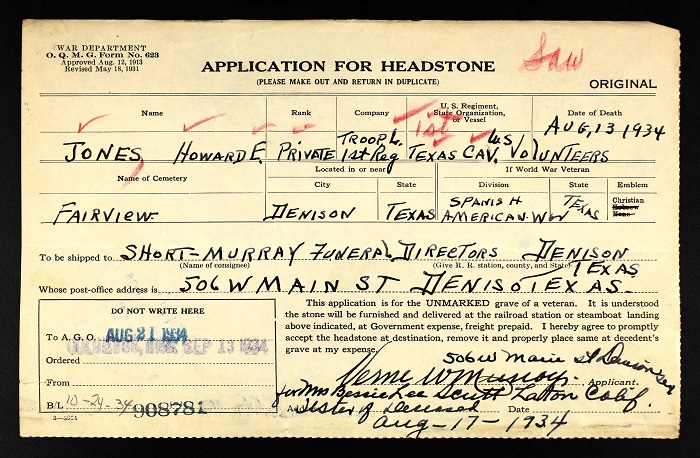 WAR DEPARTMENT
O. Q. M. G. Form No. 623
Approved Aug. 12, 1913
Revised May 18, 1931
APPLICATION FOR HEADSTONE
(PLEASE MAKE OUT AND RETURN IN DUPLICATE)
ORIGINAL
Name Rank Company U. S. Regiment, State Organization, or Vessel Date of Death
1st
AUG, 13 1934
JONES, HOWARD E. PRIVATE TROOP L. 1st Reg TEXAS CAV. U.S. VOLUNTEERS
Name of Cemetery Located in or near If World War Veteran
City State Division State Emblem
FAIRVIEW DENISON TEXAS SPANISH AMERICAN. WAR TEXAS
Christian
Hebrew
None
To be shipped to SHORT-MURRAY FUNERAL DIRECTORS DENISON TEXAS
(Name of consignee) (Give R. R. station, county, and State)
Whose post-office address is 506 W MAIN ST DENISO TEXAS.
DO NOT WRITE HERE
To A. G. O. AUG 21 1934
SEP 13 1934
Ordered
From
B/L 10-24-34 908781
3—2654
This application is for the UNMARKED grave of a veteran. It is understood
the stone will be furnished and delivered at the railroad station or steamboat landing
above indicated, at Government expense, freight prepaid. I hereby agree to promptly
accept the headstone at destination, remove it and properly place same at decedent's
grave at my expense.
506 W Main St Denison Tex
W Murray. Applicant.
for Mrs Bessie Lee Scutt Laton Calif.
Add Sister of Deceased Date
Aug-17-1934